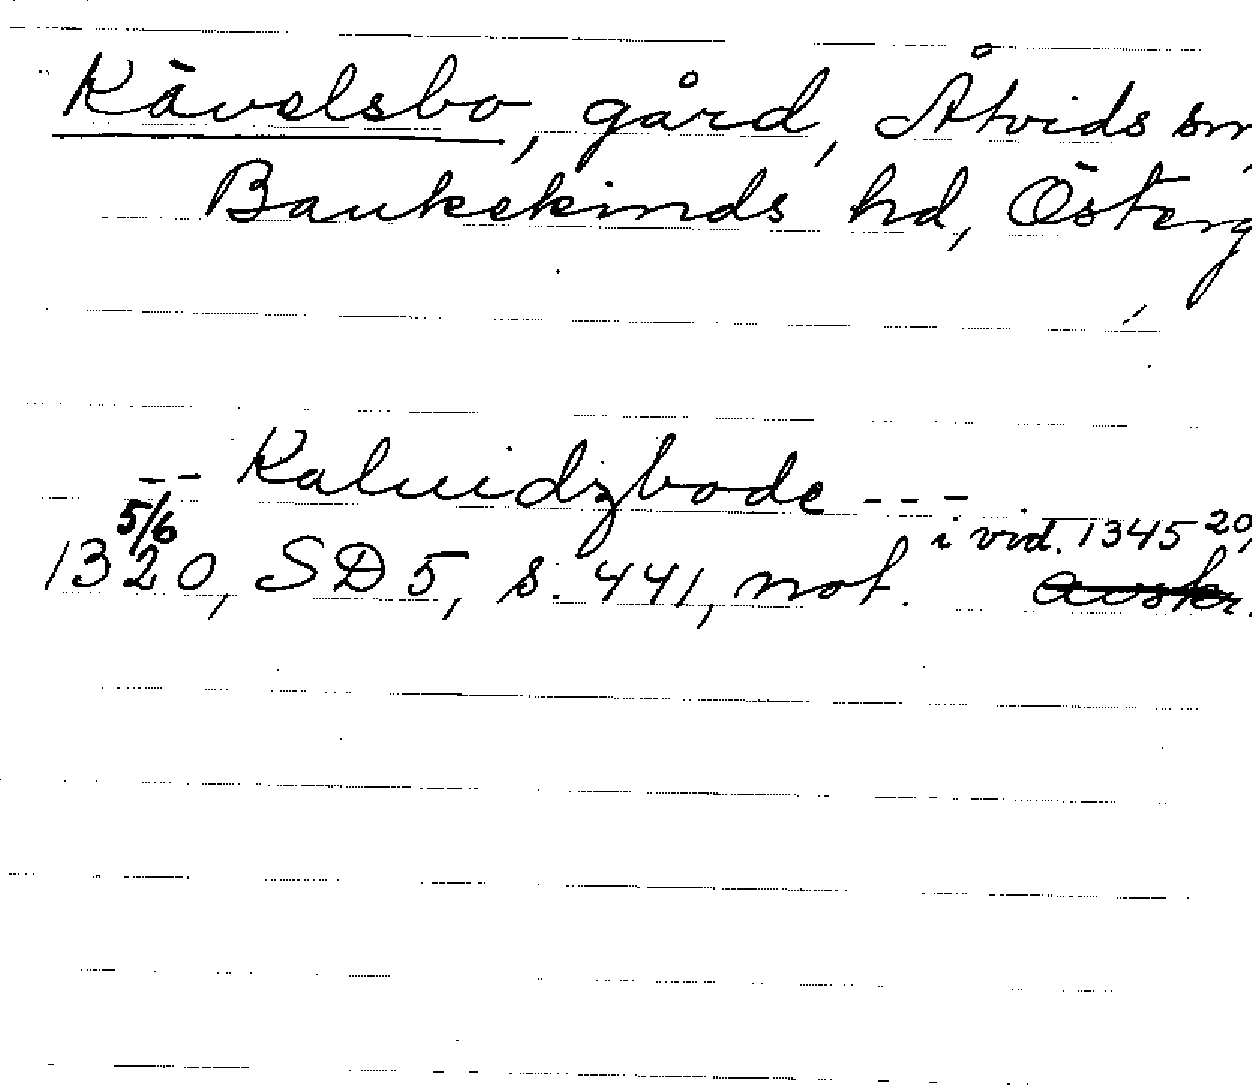 Kävelsbo, gård, Åtvids sn,
Bankekinds hd, Österg
-- Kaluidzbode ---
5/6 i vid. 1345 20,
1320, SD 5, s. 441, not. avskr.